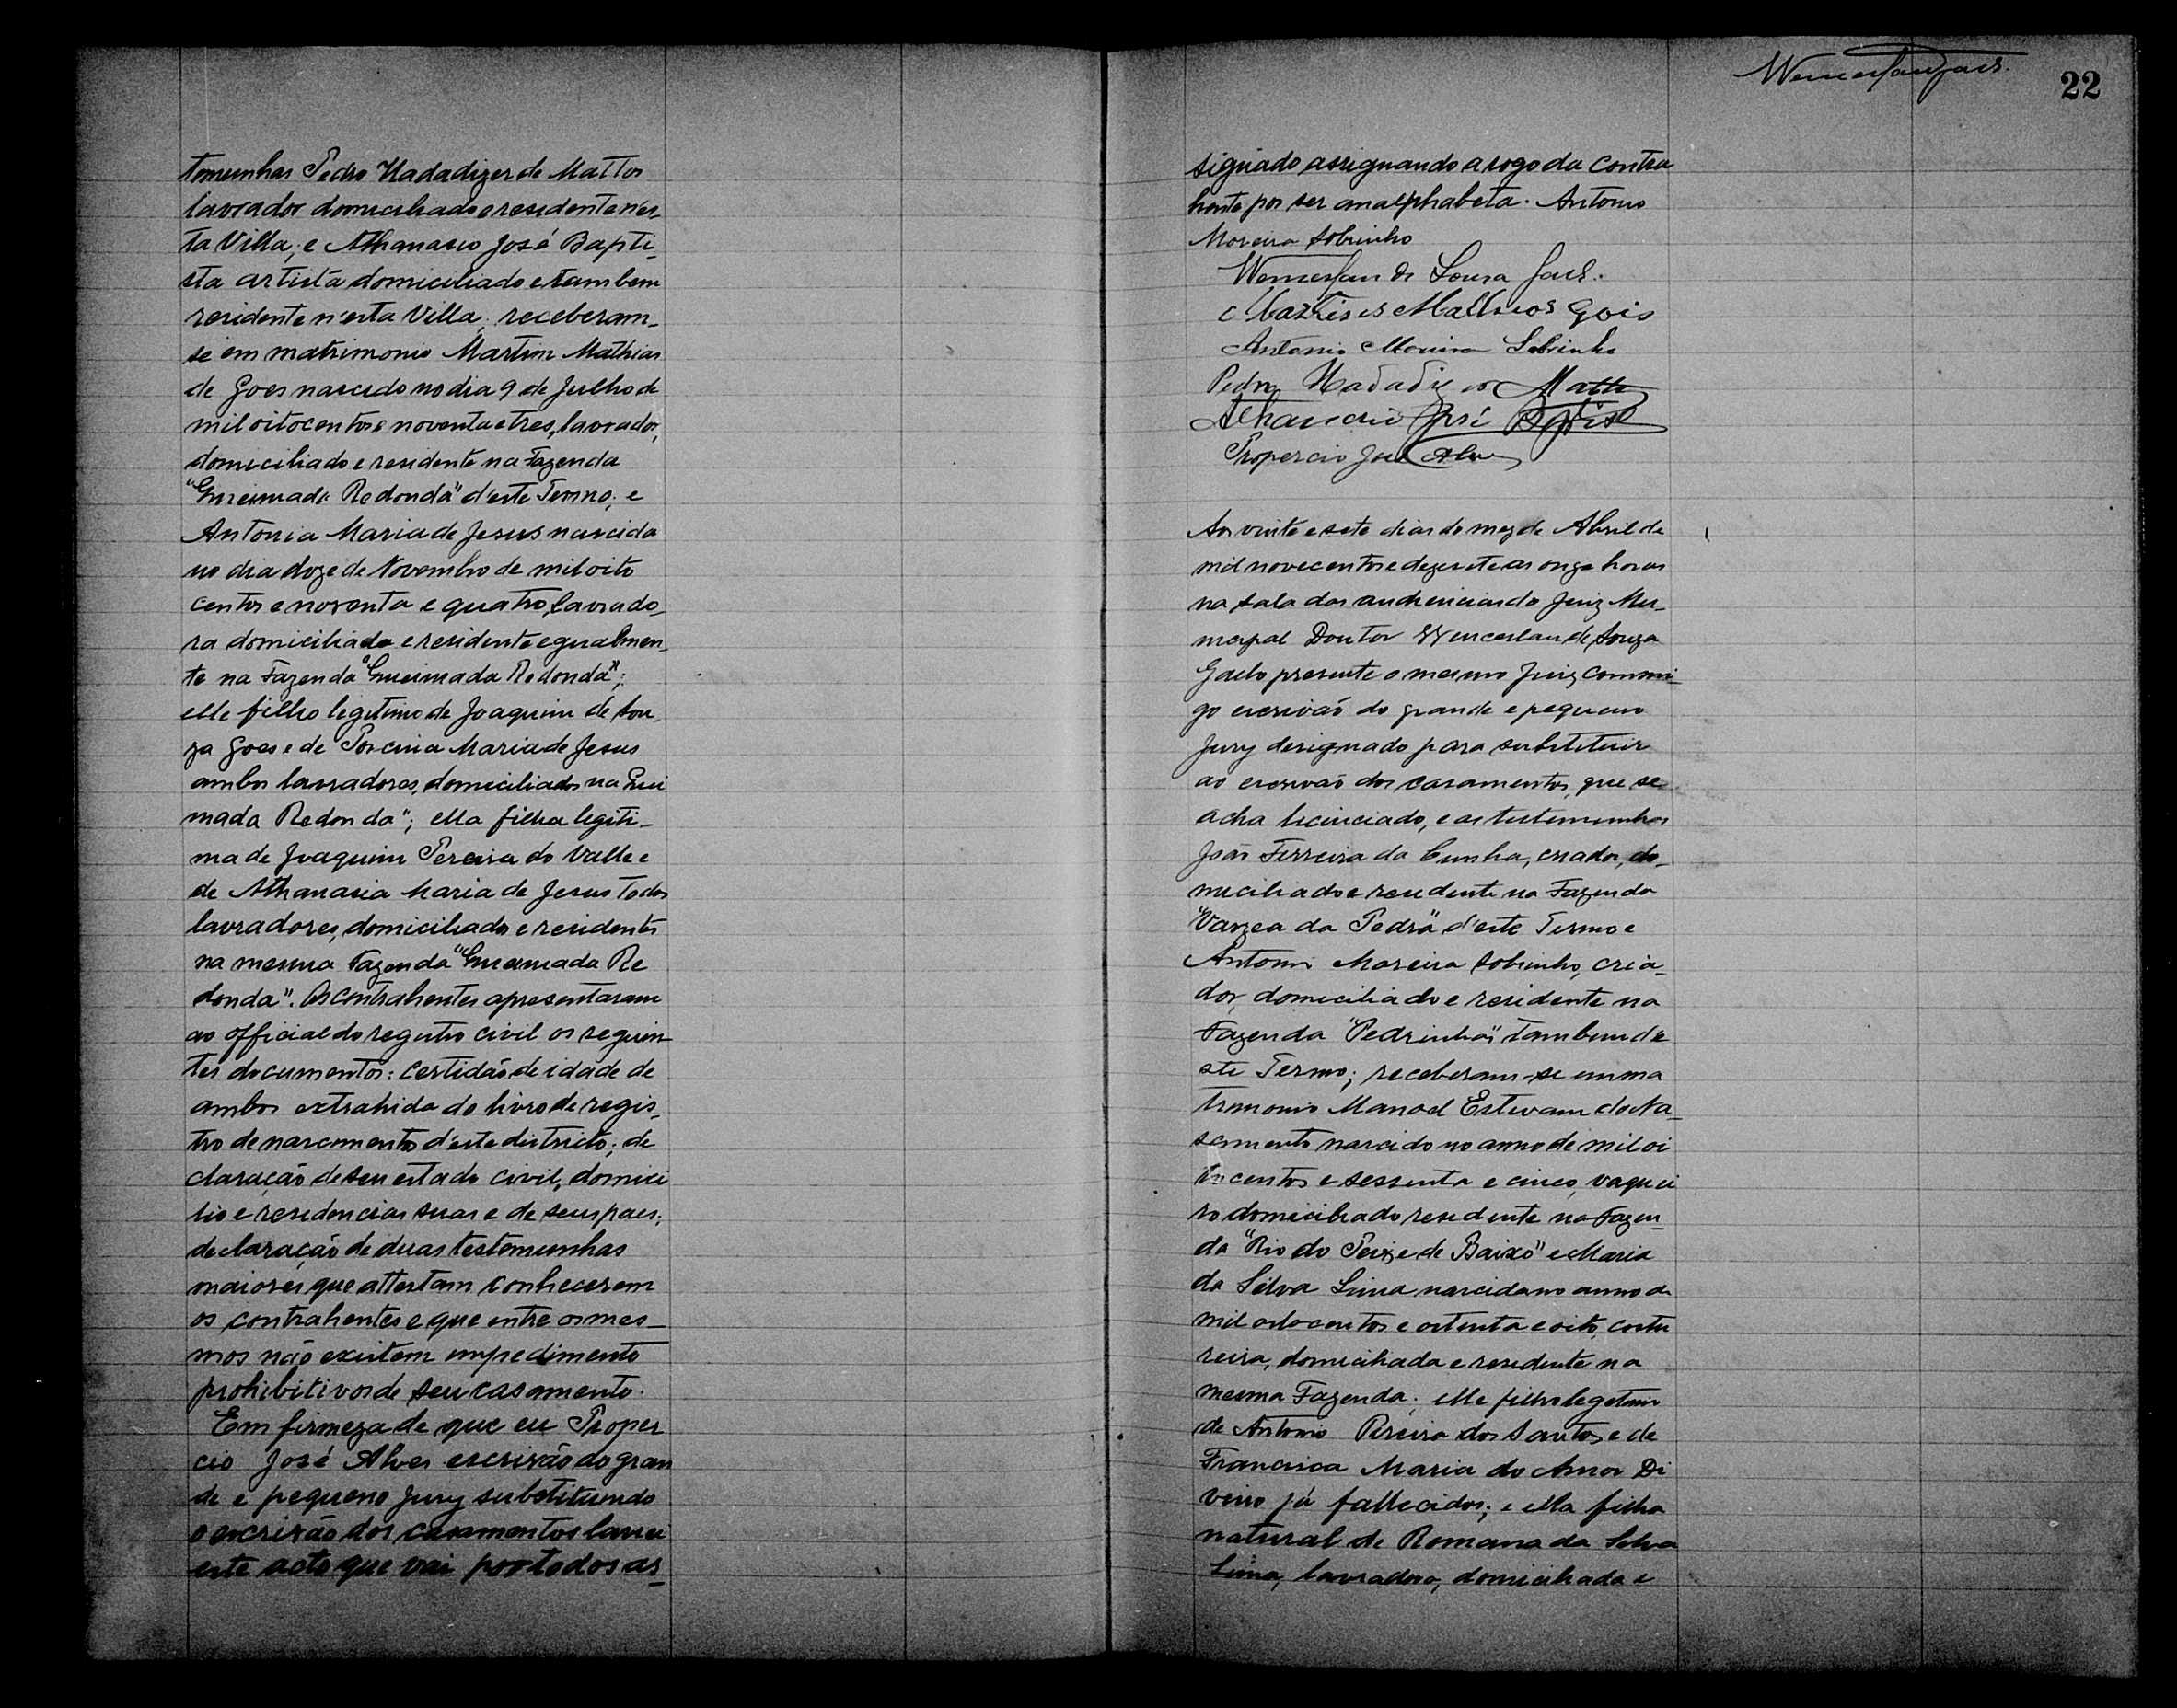 temunhas Pedro Nadadizer de Mattos
lavrador domiciliado e residente n'es_
ta Villa; e Athanasio José Bapti_
sta artista domiciliado e tambem
residente n'esta Villa; receberam_
se em matrimonio Martim Mathias
de Goes nascido no dia 9 de Julho de
mil oitocentos e noventa e tres, lavrador,
domiciliado e residente na Fazenda
"Queimada Redonda" d'este Termo; e
Antonia Maria de Jesus nascida
no dia doze de Novembro de mil oito
centos e noventa e quatro, lavrado_
ra domiciliada e residente egualmen_
te na Fazenda "Queimada Redonda";
elle filho legitimo de Joaquim de Sou_
za Goes e de Porcina Maria de Jesus
ambos lavradores, domiciliados na Quei
mada Redonda"; ella filha legiti_
ma de Joaquim Pereira do Valle e
de Athanasia Maria de Jesus todos
lavradores, domiciliados e residentes
na mesma Fazenda "Queimada Re
donda". Os contrahentes apresentaram
ao official do registro civil os seguin
tes documentos: certidão de idade de
ambos extrahida do livro de regis_
tro de nascimento d'este districto; de
claração de seu estado civil, domici
lio e residencias suas e de seus paes;
declaração de duas testemunhas
maiores que attestam conhecerem
os contrahentes e que entre os mes_
mos não existem impedimento
prohibitivos de seu casamento.
Em firmeza de que eu Proper
cio José Alves escrivão do gran
de e pequeno Jury substituindo
o escrivão dos casamentos lavrei
este acto que vai por todos as_
22
signado assignando a rogo da contra
hente por ser analphabeta. Antonio
Moreira Sobrinho
Wenceslau de Souza
Mathias Gois
Antonio Moreira Sobrinho
Pedro Nadadizer Mattos
Athanasio José Baptista
Propercio José Alves
Aos vinte e sete dias do mez de Abril de
mil novecentos e dezesete as onze horas
na sala das audiencias do Juiz Mu_
nicipal Doutor Wenceslau de Souza
presente o mesmo Juiz commi_
go escrivão do grande e pequeno
Jury designado para substituir
ao escrivão dos casamentos, que se
acha licenciado, e as testemunhas
João Ferreira da Cunha, criador, do_
miciliado e residente na Fazenda
"Varzea da Pedra" d'este Termo e
Antonio Moreira Sobrinho, cria_
dor, domiciliado e residente na
Fazenda "Pedrinhas" tambem d'e
ste Termo; receberam-se em ma
trimonio Manoel Estevam do Na_
scimento nascido no anno de mil oi
tocentos e sessenta e cinco, vaquei
ro domiciliado residente na Fazen_
da "Rio do Peixe de Baixo" e Maria
da Silva Lima nascida no anno de
mil oitocentos e oitenta e oito, costu
reira, domiciliada e residente na
mesma Fazenda; elle filho legitimo
de Antonio Pereira dos Santos e de
Francisca Maria do Amor Di
vino já fallecidos; e ella filha
natural de Romana da Silva
Lima, lavradora, domiciliada e